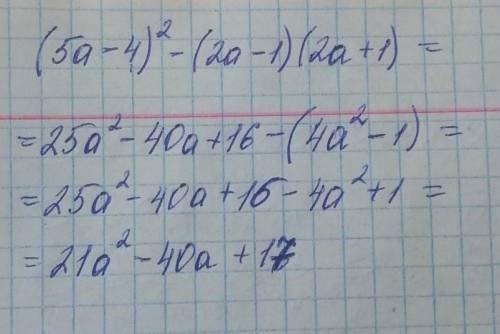 (5a-4)² - (2a-1)(2a+1) =
= 25a² - 40a + 16 - (4a² - 1) =
= 25a² - 40a + 16 - 4a² + 1 =
= 21a² - 40a + 17